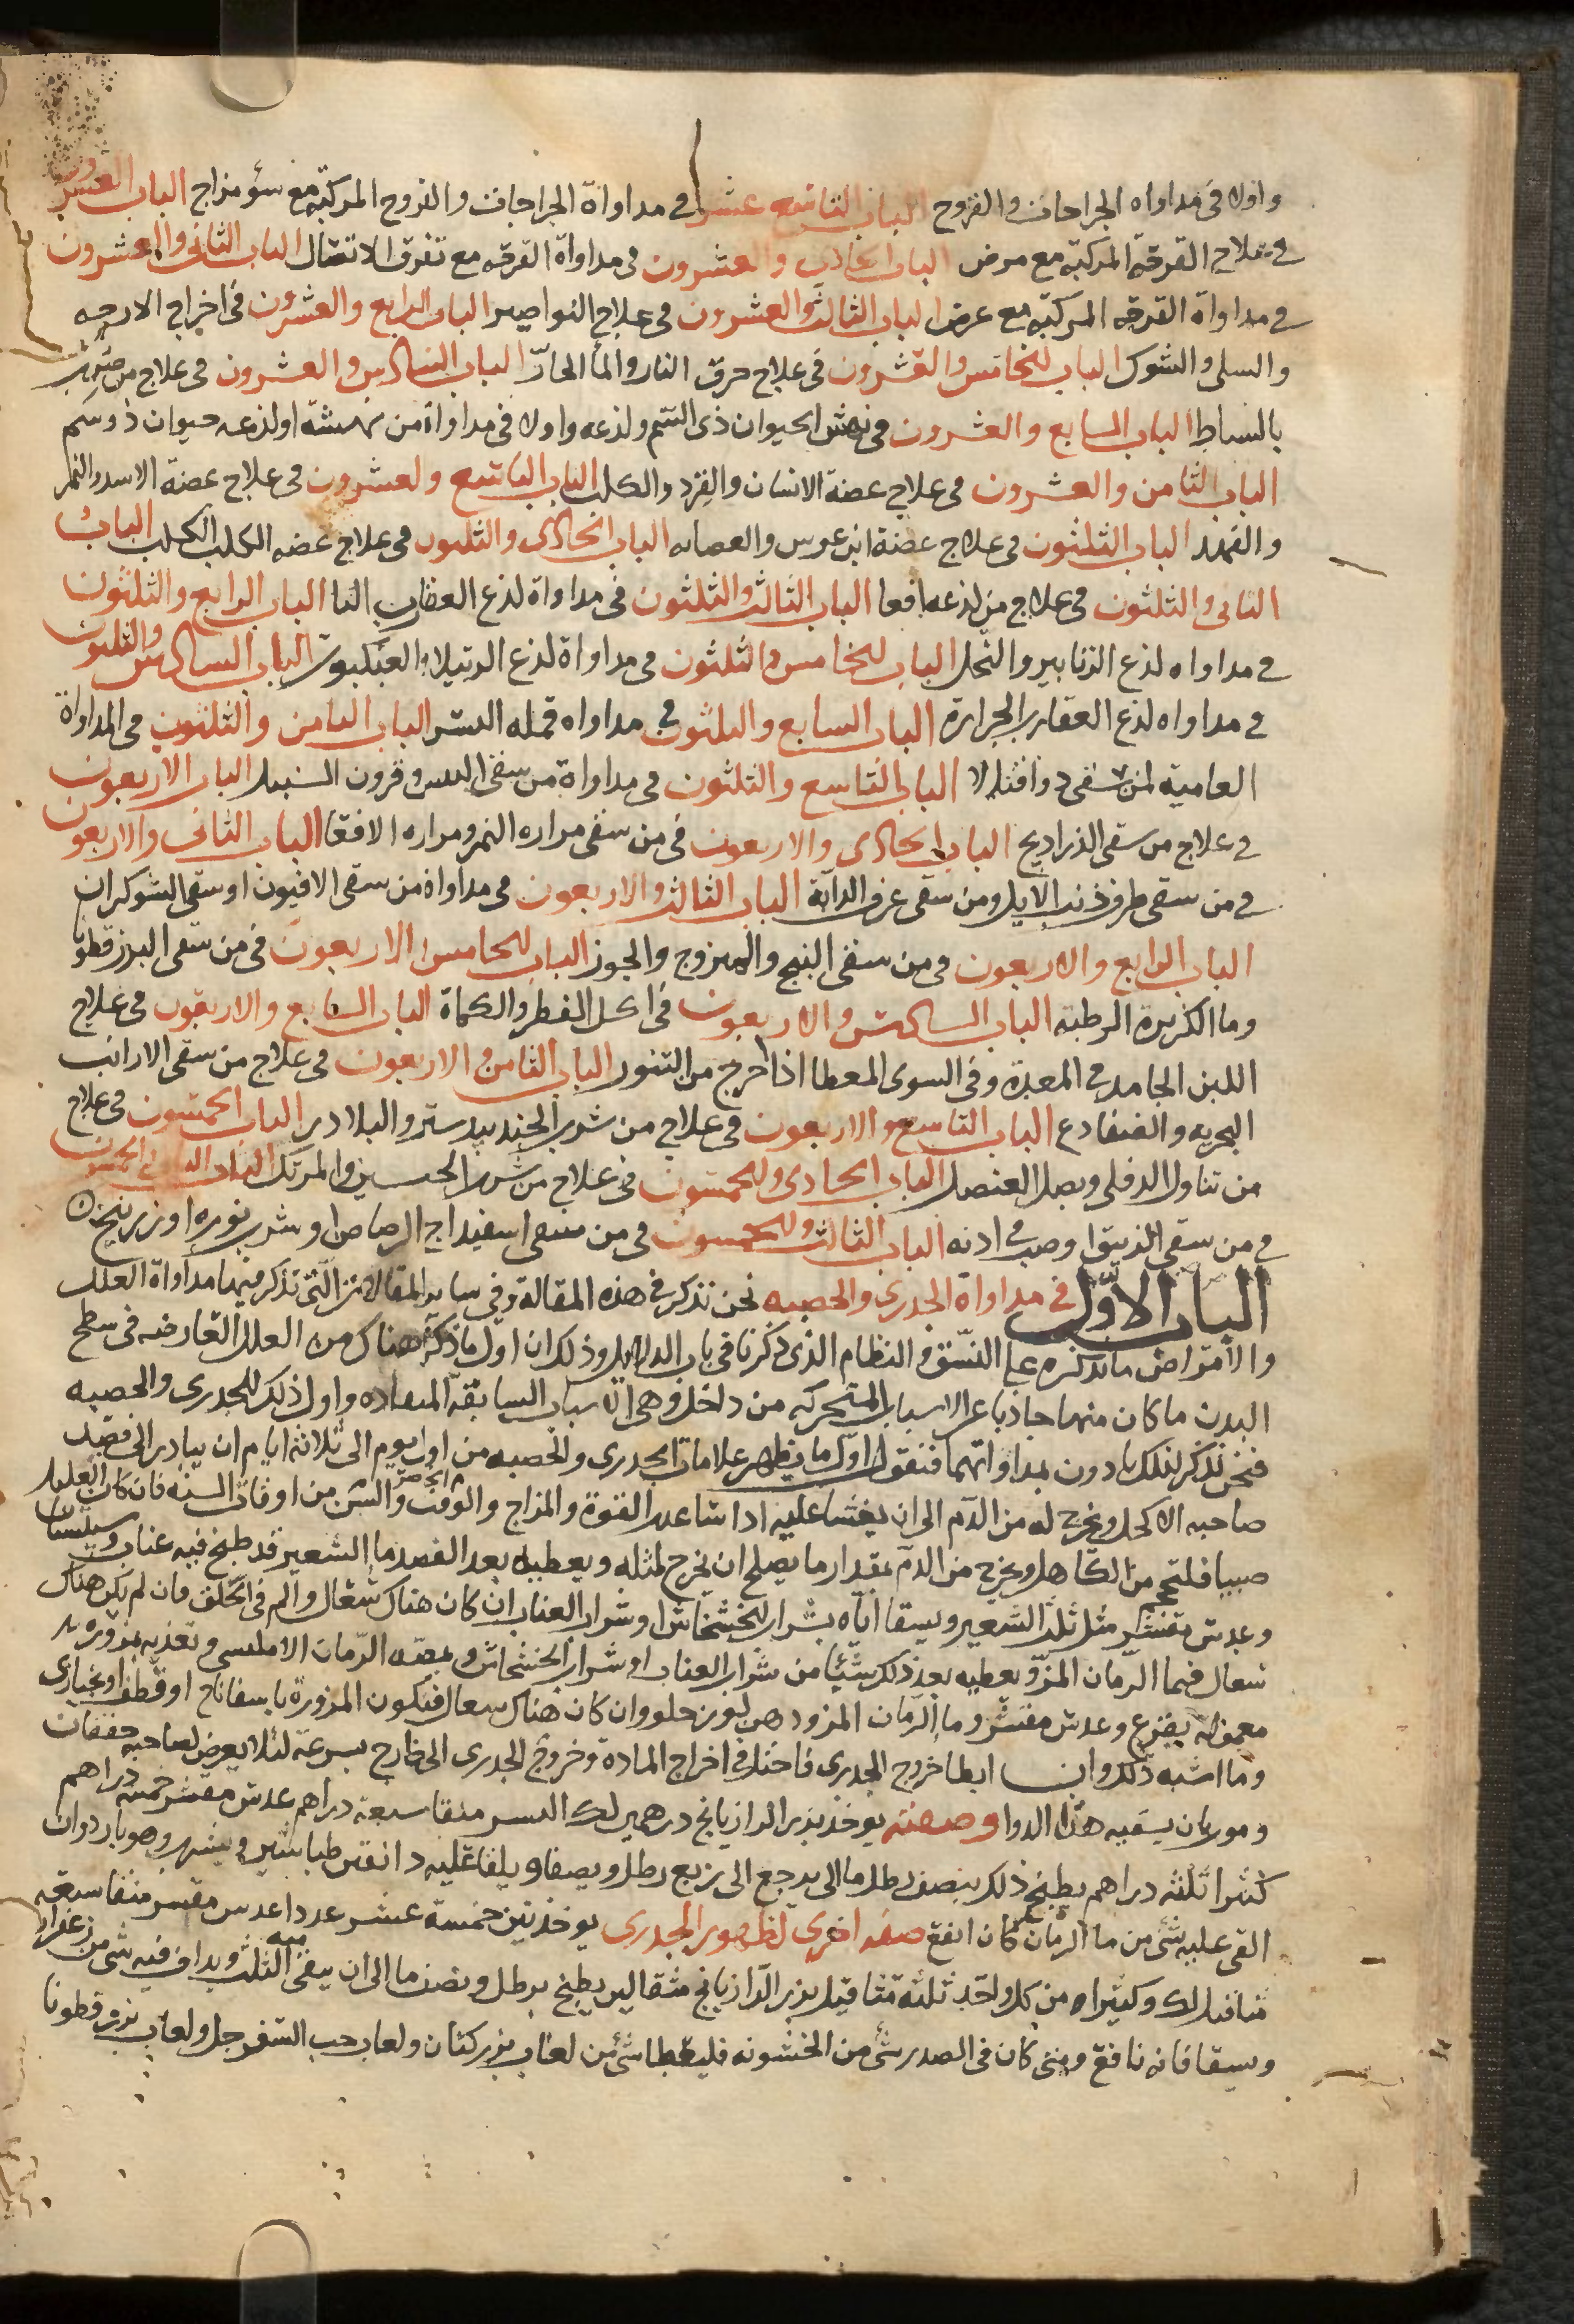 واولا في مداواه الجراحات والقروح الباب التاسع عشر في مداواة الجراحات والقروح المركبة مع سؤ مزاج الباب العشرون
في علاج القرحة المركبة مع مرض الباب الحادي والعشرون في مداواة القرحه مع تفرق الاتصال الباب الثاني والعشرون
في مداواة القرحه المركبة مع عرض الباب الثالث والعشرون في علاج النواصير الباب الرابع والعشرون في اخراج الازجه
والسلى والشوك الباب الخامس والعشرون في علاج حرق النار والماء الحارّ الباب السادس والعشرون في علاج من ضرب
بالسياط الباب السابع والعشرون في نهش الحيوان ذي السم ولذعه واولا في مداواة من نهشته اولذعه حيوان ذو سم
الباب الثامن والعشرون في علاج عضة الانسان والقرد والكلب الباب التاسع والعشرون في علاج عضة الاسد والنمر
والفهد الباب الثلثون في علاج عضة ابن عرس والعضايه الباب الحادي والثلثون في علاج عضه الكلب الكلب الباب
الثاني والثلثون في علاج من لذعه افعا الباب الثالث والثلثون في مداواة لذع العقارب الباب الرابع والثلثون
في مداواه لذع الزنابير والنحل الباب الخامس والثلثون في مداواة لذع الرتيلا والعنكبوت الباب السادس والثلثون
في مداواه لذع العقارب الجرارة الباب السابع والثلثون في مداواه قمله النسر الباب الثامن والثلثون في المداواة
العامية لمن سقي دوا قتالا الباب التاسع والثلثون في مداواة من سقي البيش وقرون السنبل الباب الاربعون
في علاج من سقي الذراريح الباب الحادي والاربعون في من سقي مراره النمر ومراره الافعا الباب الثاني والاربعون
في من سقي طرف ذنب الايل ومن سقي عرق الدابة الباب الثالث والاربعون في مداواة من سقي الافيون او سقي الشوكران
الباب الرابع والاربعون في من سقي البنج واليبروج والجوز الباب الخامس والاربعون في من سقي البزر قطونا
وما الكزبرة الرطبة الباب السادس والاربعون في اكل الفطر والكماة الباب السابع والاربعون في علاج
اللبن الجامد في المعدة وفي الشوى المعطا اذا اخرج من التنور الباب الثامن والاربعون في علاج من سقي الارانب
البحريه والضفادع الباب التاسع والاربعون في علاج من شرب الجندبيدستر والبلادر الباب الخمسون في علاج
من تناول الدفلى وبصل العنصل الباب الحادي والخمسون في علاج من شرب الجبسين والمرتك الباب الثاني والخمسون
في من سقي الزيبق او صب في اذنه الباب الثالث والخمسون في من سقي اسفيداج الرصاص او شرب نوره او زرنيخ
الباب الاوّل في مداواة الجدري والحصبه نحن نذكر في هذه المقالة وفي ساير المقالات التي نذكر فيها مداواة العلل
والامراض ما نذكره على النسق والنظام الذي ذكرنا في باب الدلايل وذلك ان اول ما ذكر هناك من العلل العارضه في سطح
البدن ما كان منها حادثا عن الاسباب المتحركه من داخل وهي الاسباب السابقة المعاده واول ذلك الجدري والحصبه
فنحن نذكر لذلك بادون بمداواتهما فنقول اول ما يظهر علامات الجدري والحصبه من اول يوم الى ثلاثة ايام ان يبادر الى فصد
صاحبه الاكحل ويخرج له من الدم الى ان يغشا عليه اذا ساعدت القوة والمزاج والوقت الحاضر والسن من اوقات السنه فان كان العليل
صبيا فليحجم من الكاهل ويخرج من الدم بمقدار ما يصلح ان يخرج لمثله ويعطيه بعد الفصد ما الشعير قد طبخ فيه عناب وسبستان
وعدس مقشر مثل ثلث الشعير ويسقا اياه بشراب الخشخاش او شراب العناب ان كان هناك سعال والم في الحلق فان لم يكن هناك
سعال فبما الرمان المز ويعطيه بعد ذلك شيئا من شراب العناب او شراب الخشخاش ويمصه الرمان الامليسي وتغذيه بمزوره
معموله بقرع وعدس مقشر وما الرمان المز ودهن لوز حلو وان كان هناك سعال فتكون المزورة باسفاناخ او قطف او خبازى
وما اشبه ذلك وان ابطا خروج الجدري فاحتل في اخراج المادة وخروج الجدري الى خارج بسرعة لئلا يعرض لصاحبه خفقان
ومو ربان يسقيه هذا الدوا وصفته يوخذ بزر الرازيانج درهمين لك البسر منقا سبعة دراهم عدس مقشر خمسة دراهم
كثيرا ثلثه دراهم يطبخ ذلك بنصف رطل ما الى يرجع الى ربع رطل ويصفا ويلقا عليه دانقين طباشير ويشرب وهو بارد وان
القي عليه شي من ما الرمان كان انفع صفه اخرى لظهور الجدري يوخذ تين خمسة عشر عددا عدس مقشر منقا سبعة
مثاقيل لك وكثيرا من كل واحد ثلثه مثاقيل بزر الرازيانج مثقالين يطبخ برطل ونصف ما الى ان يبقى منه الثلث ويداف فيه شي من زعفران
ويسقا فانه نافع ومتى كان في الصدر شي من الخشونه فليعطا شي من لعاب بزر كتان ولعاب حب السفرجل ولعاب بزر قطونا